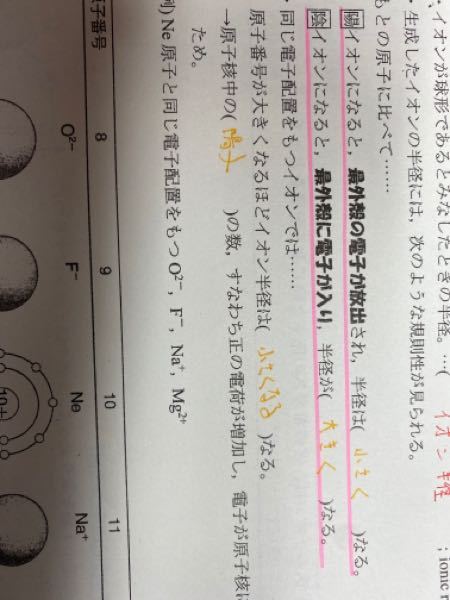 ：イオンが球形であるとみなしたときの半径。…( イオン半径
; ionic r
・生成したイオンの半径には，次のような規則性が見られる。
もとの原子に比べて……
陽イオンになると，最外殻の電子が放出され，半径は( 小さく )なる。
陰イオンになると，最外殻に電子が入り，半径が( 大きく )なる。
・同じ電子配置をもつイオンでは……
原子番号が大きくなるほどイオン半径は( 小さくなる )なる。
→原子核中の( )の数，すなわち正の電荷が増加し，電子が原子核に
ため。
例) Ne 原子と同じ電子配置をもつ O²⁻, F⁻, Na⁺, Mg²⁺
子番号 8 9 10 11
O²⁻ F⁻ Ne Na⁺
10+